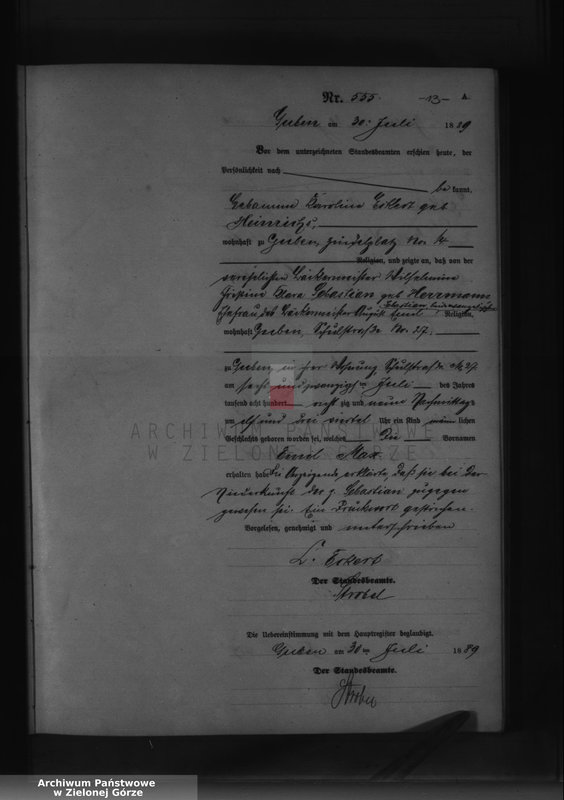 Nr. 555 -13- A
Guben am 30. Juli 1889
Vor dem unterzeichneten Standesbeamten erschien heute, der
Persönlichkeit nach
be kannt,
Hebamme Karoline Eckert geb.
Heinrichs,
wohnhaft zu Guben, No. 4
Religion, und zeigte an, daß von der
verehelichten Bäckermeister Wilhelmine
Clara Sebastian geb. Herrmann
Ehefrau des Bäckermeister August Emil Sebastian, beide evangelischer Religion,
wohnhaft Guben, Schulstraße No. 27.
zu Guben in ihrer Wohnung Schulstraße No. 27
am sechs und zwanzigsten Juli des Jahres
tausend acht hundert acht zig und neun Nachmittags
um elf und drei viertel Uhr ein Kind männ lichen
Geschlechts geboren worden sei, welches die Vornamen
Emil Max
erhalten habe. Die Anzeigende erklärte, daß sie bei der
Niederkunft der p. Sebastian zugegen
gewesen sei. Ein Druckwort gestrichen.
Vorgelesen, genehmigt und unterschrieben
Eckert
Der Standesbeamte.
Strobel
Die Uebereinstimmung mit dem Hauptregister beglaubigt.
Guben am 30ten Juli 1889
Der Standesbeamte.
Strobel
ARCHIWUM PAŃSTWOWE
W ZIELONEJ GÓRZE
Archiwum Państwowe
w Zielonej Górze